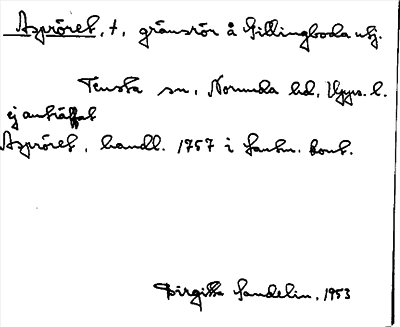 Aspröret, †, gränsrör å Gillingboda utj.
Tensta sn, Norunda hd, Upps. l.
ej anträffat
Aspröret, handl. 1757 i lantm. kont.
Birgitta Sandelin, 1953